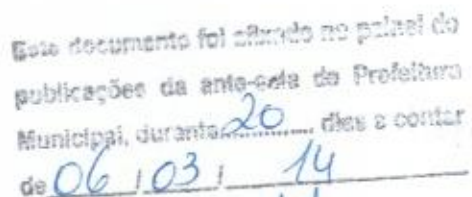 Este documento foi afixado no painel de
publicações da ante-sala da Prefeitura
Municipal, durante 20 dias a contar
de 06 / 03 / 14